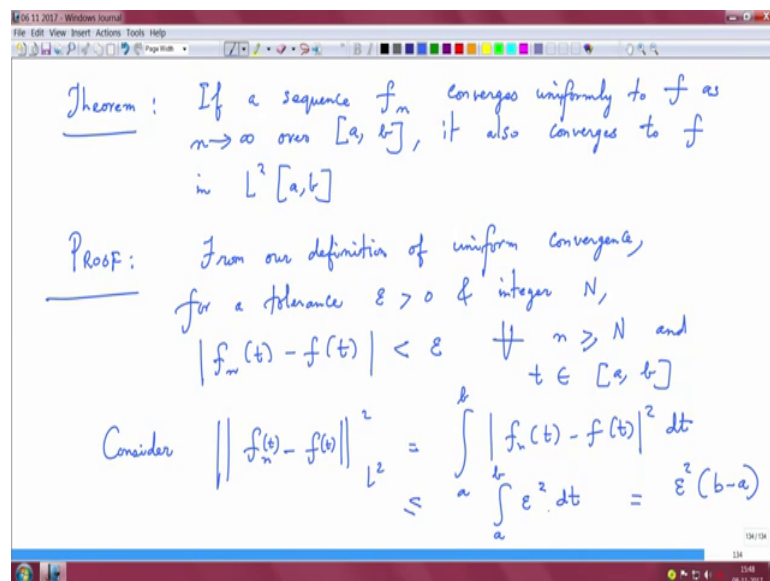 06 11 2017 - Windows Journal
File Edit View Insert Actions Tools Help
Page Width
Theorem : If a sequence fₙ converges uniformly to f as
n → ∞ over [a, b], it also converges to f
in L² [a,b]
PROOF : From our definition of uniform convergence,
for a tolerance ε > 0 & integer N,
| fₙ(t) - f(t) | < ε ∀ n ≥ N and
t ∈ [a, b]
Consider || fₙ(t) - f(t) ||²_L² = ∫ₐᵇ | fₙ(t) - f(t) |² dt
≤ ∫ₐᵇ ε² dt = ε² (b-a)
134/134
134
15:48
08-11-2017